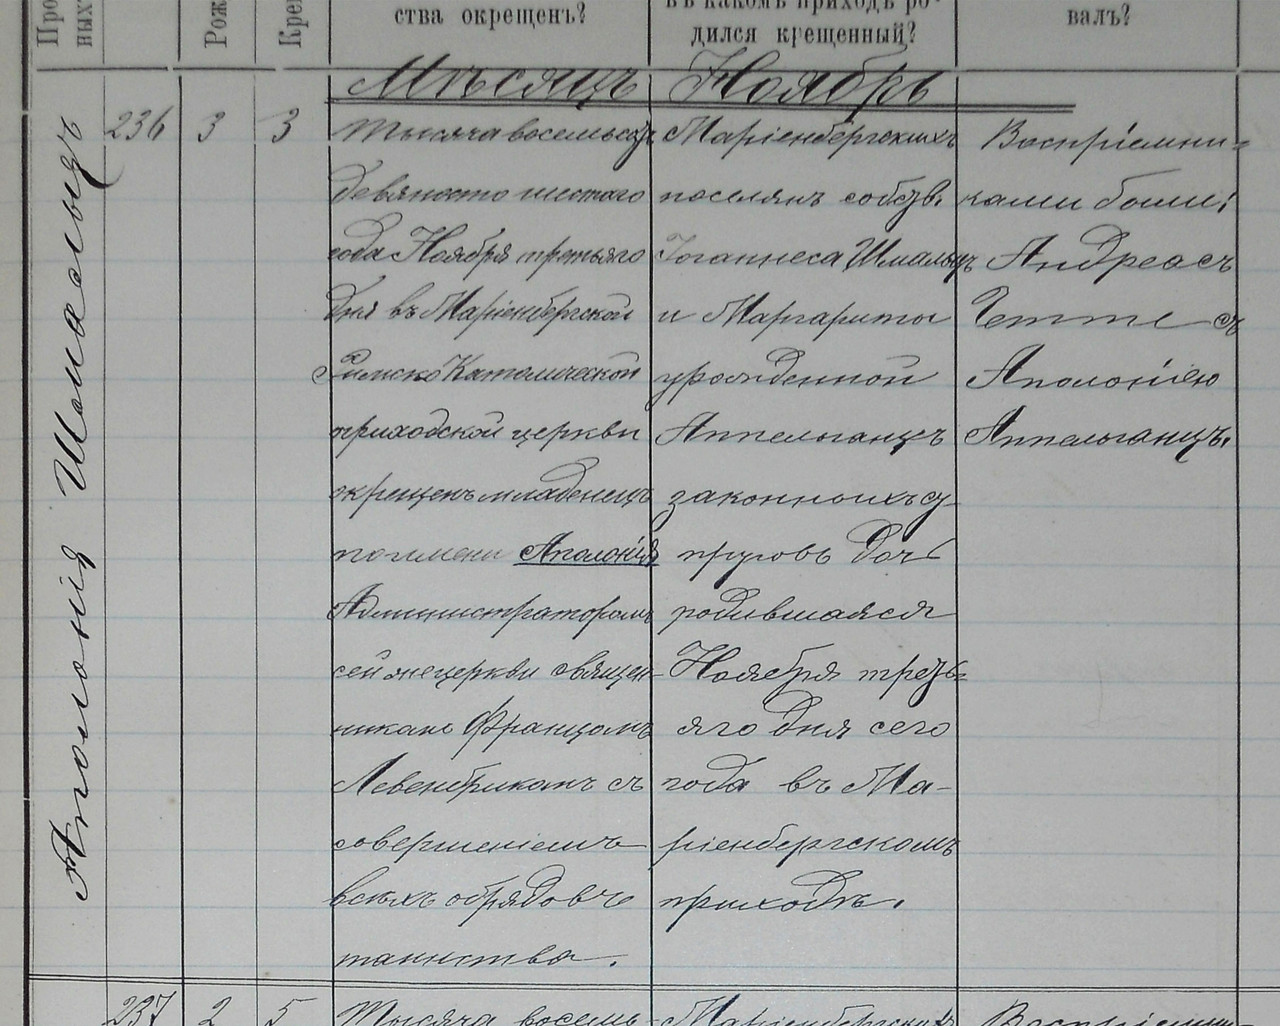 Про
ныхъ
Рож
Кре
ства окрещенъ?
въ какомъ приходѣ ро-
дился крещенный?
валъ?
Мѣсяцъ Ноябрь
Аполонія Шмальцъ
236 3 3
Тысяча восемьсотъ
девяносто шестаго
года Ноября третьяго
дня въ Маріенбергской
Римско Католической
приходской церкви
окрещенъ младенецъ
по имени Аполонія
Администраторомъ
сей же церкви священ-
никомъ Францомъ
Левенбрикомъ съ
совершеніемъ
всѣхъ обрядовъ
таинства.
Маріенбергскихъ
поселянъ собств.
Іоганнеса Шмальцъ
и Маргариты
урожденной
Аппельганцъ
законныхъ су-
пруговъ дочь
родившаяся
Ноября треть-
яго дня сего
года въ Ма-
ріенбергскомъ
приходѣ.
Воспріемни-
ками были:
Андреасъ
Гетте съ
Аполоніею
Аппельганцъ.
237 2 5
Тысяча восемь-
Маріенбергскихъ
Воспріемни-